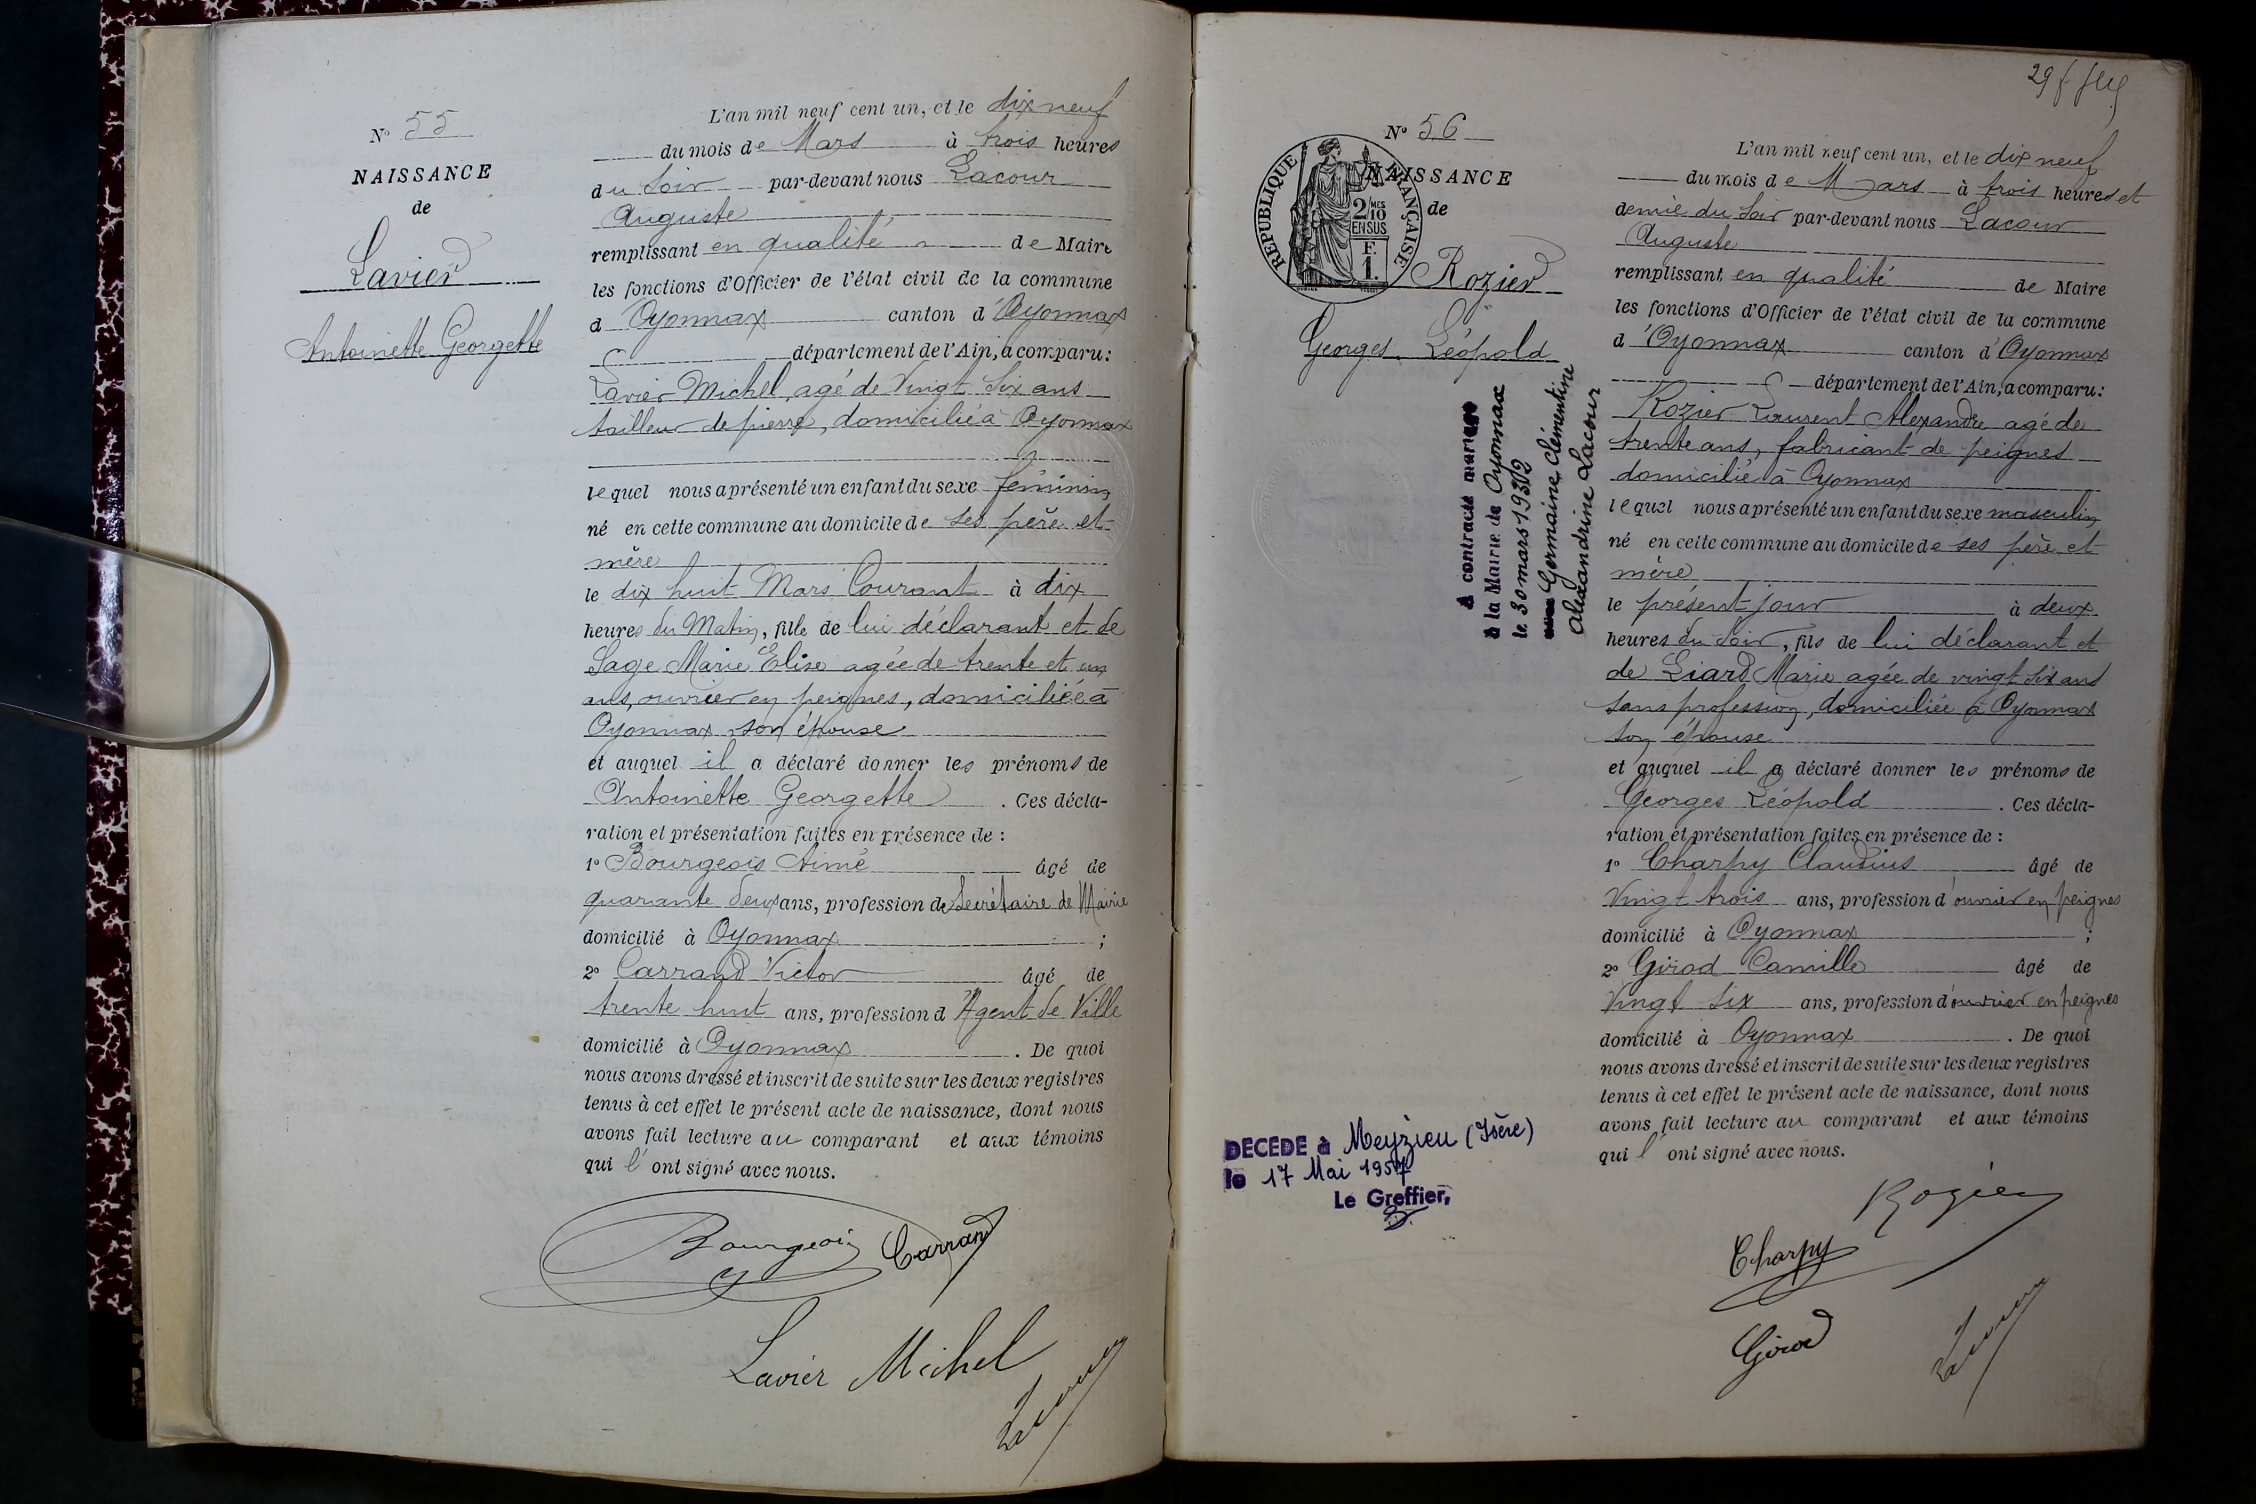 N° 55
NAISSANCE
de
Lavier
Antoinette Georgette
L'an mil neuf cent un, et le dix neuf
du mois de Mars à trois heures
du soir par-devant nous Lacour
Auguste
remplissant en qualité de Maire
les fonctions d'Officier de l'état civil de la commune
d Oyonnax canton d'Oyonnax
département de l'Ain, a comparu :
Lavier Michel, agé de Vingt six ans
tailleur de pierre, domicilié à Oyonnax
lequel nous a présenté un enfant du sexe féminin
né en cette commune au domicile de ses père et
mère
le dix huit Mars Courant à dix
heures du Matin, fille de lui déclarant et de
Sage Marie Elise agée de trente et un
ans, ouvrier en peignes, domiciliée à
Oyonnax son épouse
et auquel il a déclaré donner les prénoms de
Antoinette Georgette. Ces décla-
ration et présentation faites en présence de :
1° Bourgeois Aimé âgé de
quarante deux ans, profession de Secrétaire de Mairie
domicilié à Oyonnax ;
2° Carrand Victor âgé de
trente huit ans, profession d'Agent de Ville
domicilié à Oyonnax. De quoi
nous avons dressé et inscrit de suite sur les deux registres
tenus à cet effet le présent acte de naissance, dont nous
avons fait lecture au comparant et aux témoins
qui l'ont signé avec nous.
Bourgeois Carrand
Lavier Michel
Lacour
N° 56
NAISSANCE
de
RÉPUBLIQUE FRANÇAISE
2/10 MES
EN SUS
F.
1.
Rozier
Georges Léopold
A contracté mariage
à la Mairie de Oyonnax
le 30 mars 1932
Germaine Clémentine
Alexandrine Lacour
DÉCÉDÉ à Meyzieu (Isère)
le 17 Mai 1957
Le Greffier,
L'an mil neuf cent un, et le dix neuf
du mois de Mars à trois heures et
demie du soir par-devant nous Lacour
Auguste
remplissant en qualité de Maire
les fonctions d'Officier de l'état civil de la commune
d'Oyonnax canton d'Oyonnax
département de l'Ain, a comparu :
Rozier Laurent Alexandre agé de
trente ans, fabricant de peignes
domicilié à Oyonnax
lequel nous a présenté un enfant du sexe masculin
né en cette commune au domicile de ses père et
mère
le présent jour à deux
heures du soir, fils de lui déclarant et
de Liard Marie agée de vingt six ans
sans profession, domiciliée à Oyonnax
son épouse
et auquel il a déclaré donner les prénoms de
Georges Léopold. Ces décla-
ration et présentation faites en présence de :
1° Charpy Claudius âgé de
Vingt trois ans, profession d'ouvrier en peignes
domicilié à Oyonnax ;
2° Girod Camille âgé de
Vingt six ans, profession d'ouvrier en peignes
domicilié à Oyonnax. De quoi
nous avons dressé et inscrit de suite sur les deux registres
tenus à cet effet le présent acte de naissance, dont nous
avons fait lecture au comparant et aux témoins
qui l'ont signé avec nous.
Rozier
Charpy
Girod
Lacour